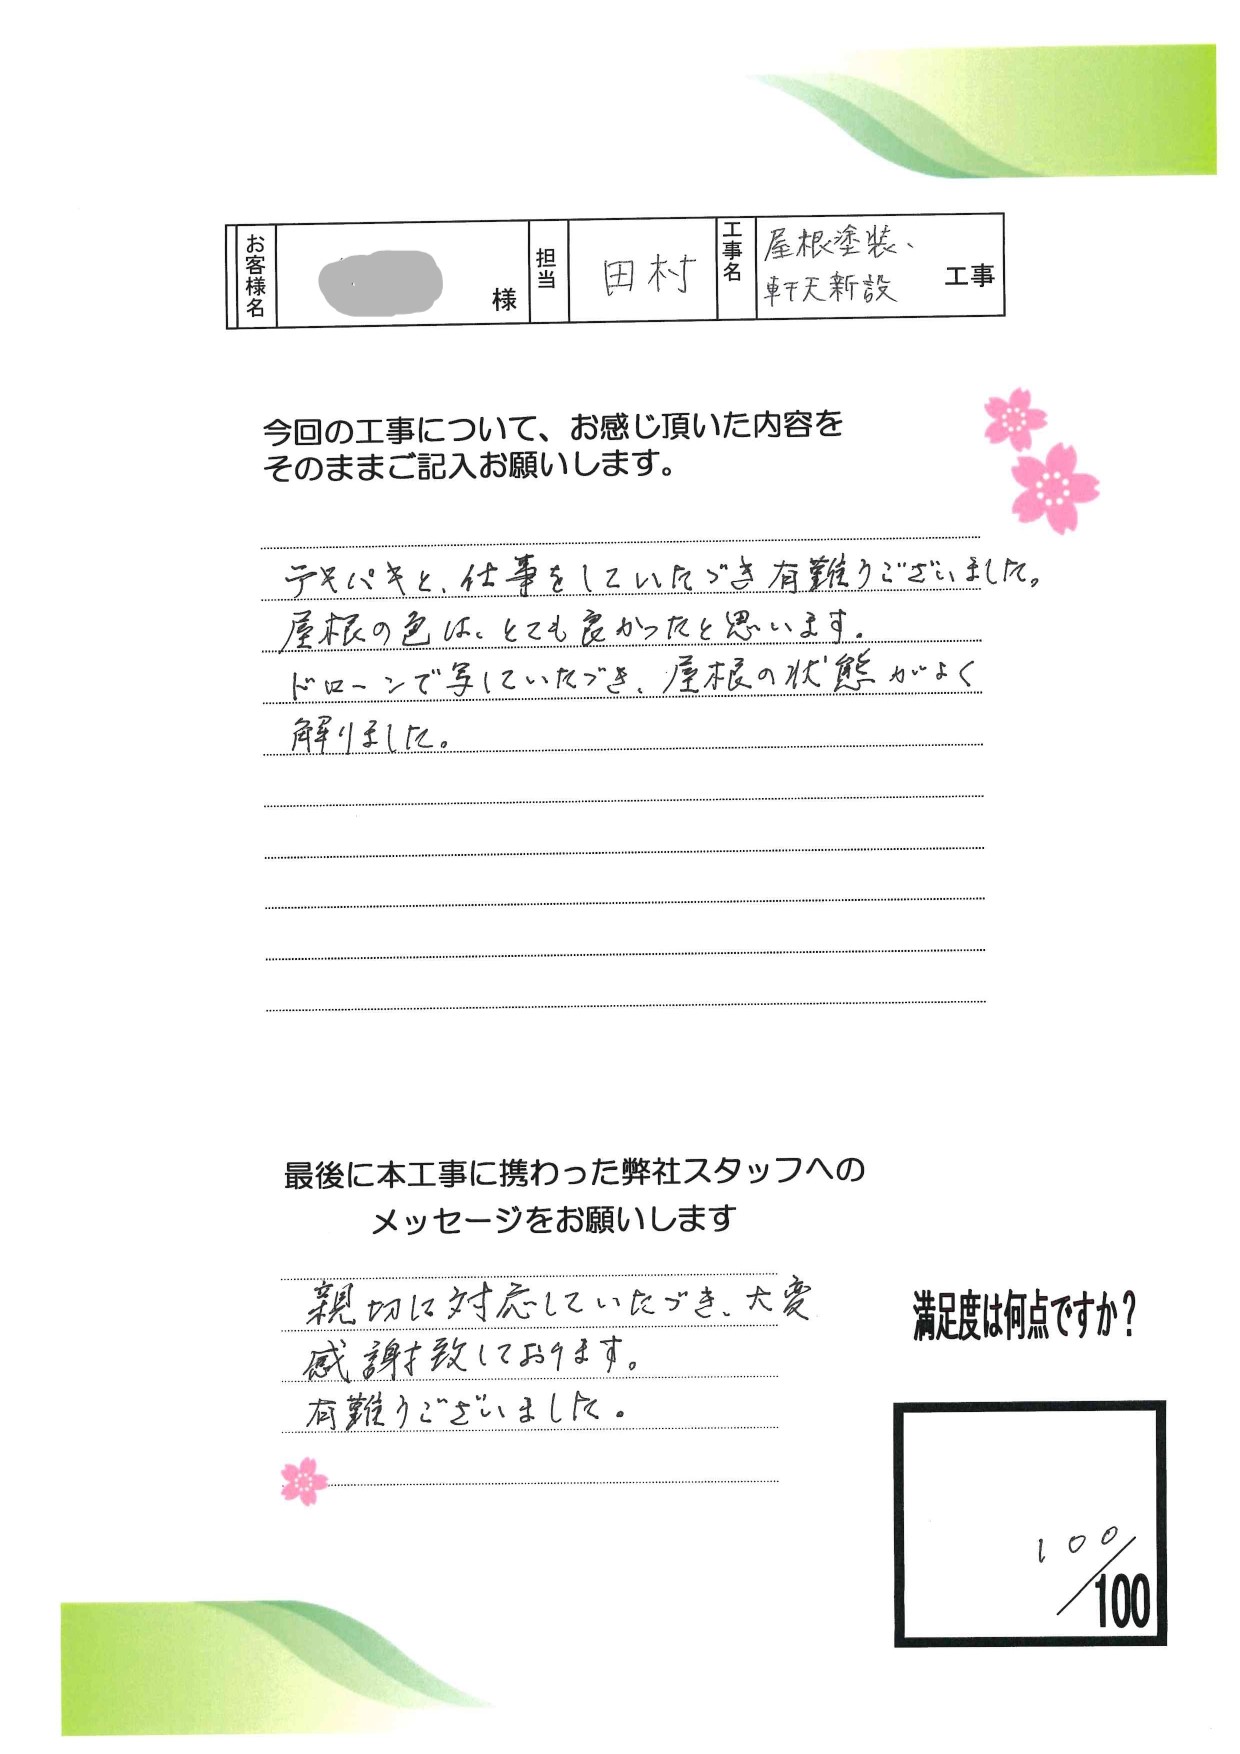 お客様名 様 担当 田村 工事名 屋根塗装、
軒天新設 工事
今回の工事について、お感じ頂いた内容を
そのままご記入お願いします。
テキパキと、仕事をしていたづき有難うございました。
屋根の色は、とても良かったと思います。
ドローンで写していたづき、屋根の状態がよく
解りました。
最後に本工事に携わった弊社スタッフへの
メッセージをお願いします
親切に対応していたづき、大変
感謝致しております。
有難うございました。
満足度は何点ですか？
100
/100